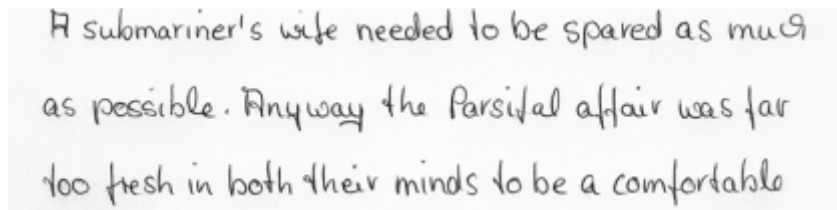 A submariner's wife needed to be spared as much
as possible. Anyway the Parsifal affair was far
too fresh in both their minds to be a comfortable